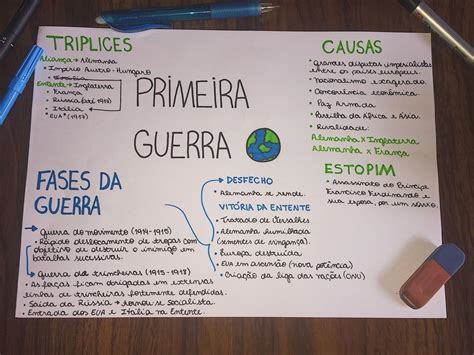 TRIPLICES
Aliança → Alemanha
• Império Austro-Hungaro
• Itália
Entente → Inglaterra
• França
• Rússia (até 1917)
• Itália
• EUA (1917)
PRIMEIRA
GUERRA
CAUSAS
• Grandes disputas imperialistas
entre os países europeus.
• Nacionalismo exagerado.
• Concorrência econômica
• Paz Armada
• Partilha da África e Ásia
• Rivalidade:
Alemanha X Inglaterra
Alemanha X França
ESTOPIM
• Assassinato do Príncipe
Francisco Ferdinando e
sua esposa, por um sérvio.
FASES DA
GUERRA
→ Guerra do movimento (1914-1915)
• Rápido deslocamento de tropas com
objetivo de destruir o inimigo em
batalhas sucessivas.
→ Guerra de trincheiras (1915-1918)
• As forças ficam obrigadas em extensas
linhas de trincheiras fortemente defendidas.
• Saída da Rússia → tornou-se socialista.
• Entrada dos EUA e Itália na Entente.
DESFECHO
• Alemanha se rende.
VITÓRIA DA ENTENTE
• Tratado de Versalhes
• Alemanha humilhada
(sementes de vingança).
• Europa destruída
• EUA em ascensão (nova potência)
• Criação da liga das nações (ONU)